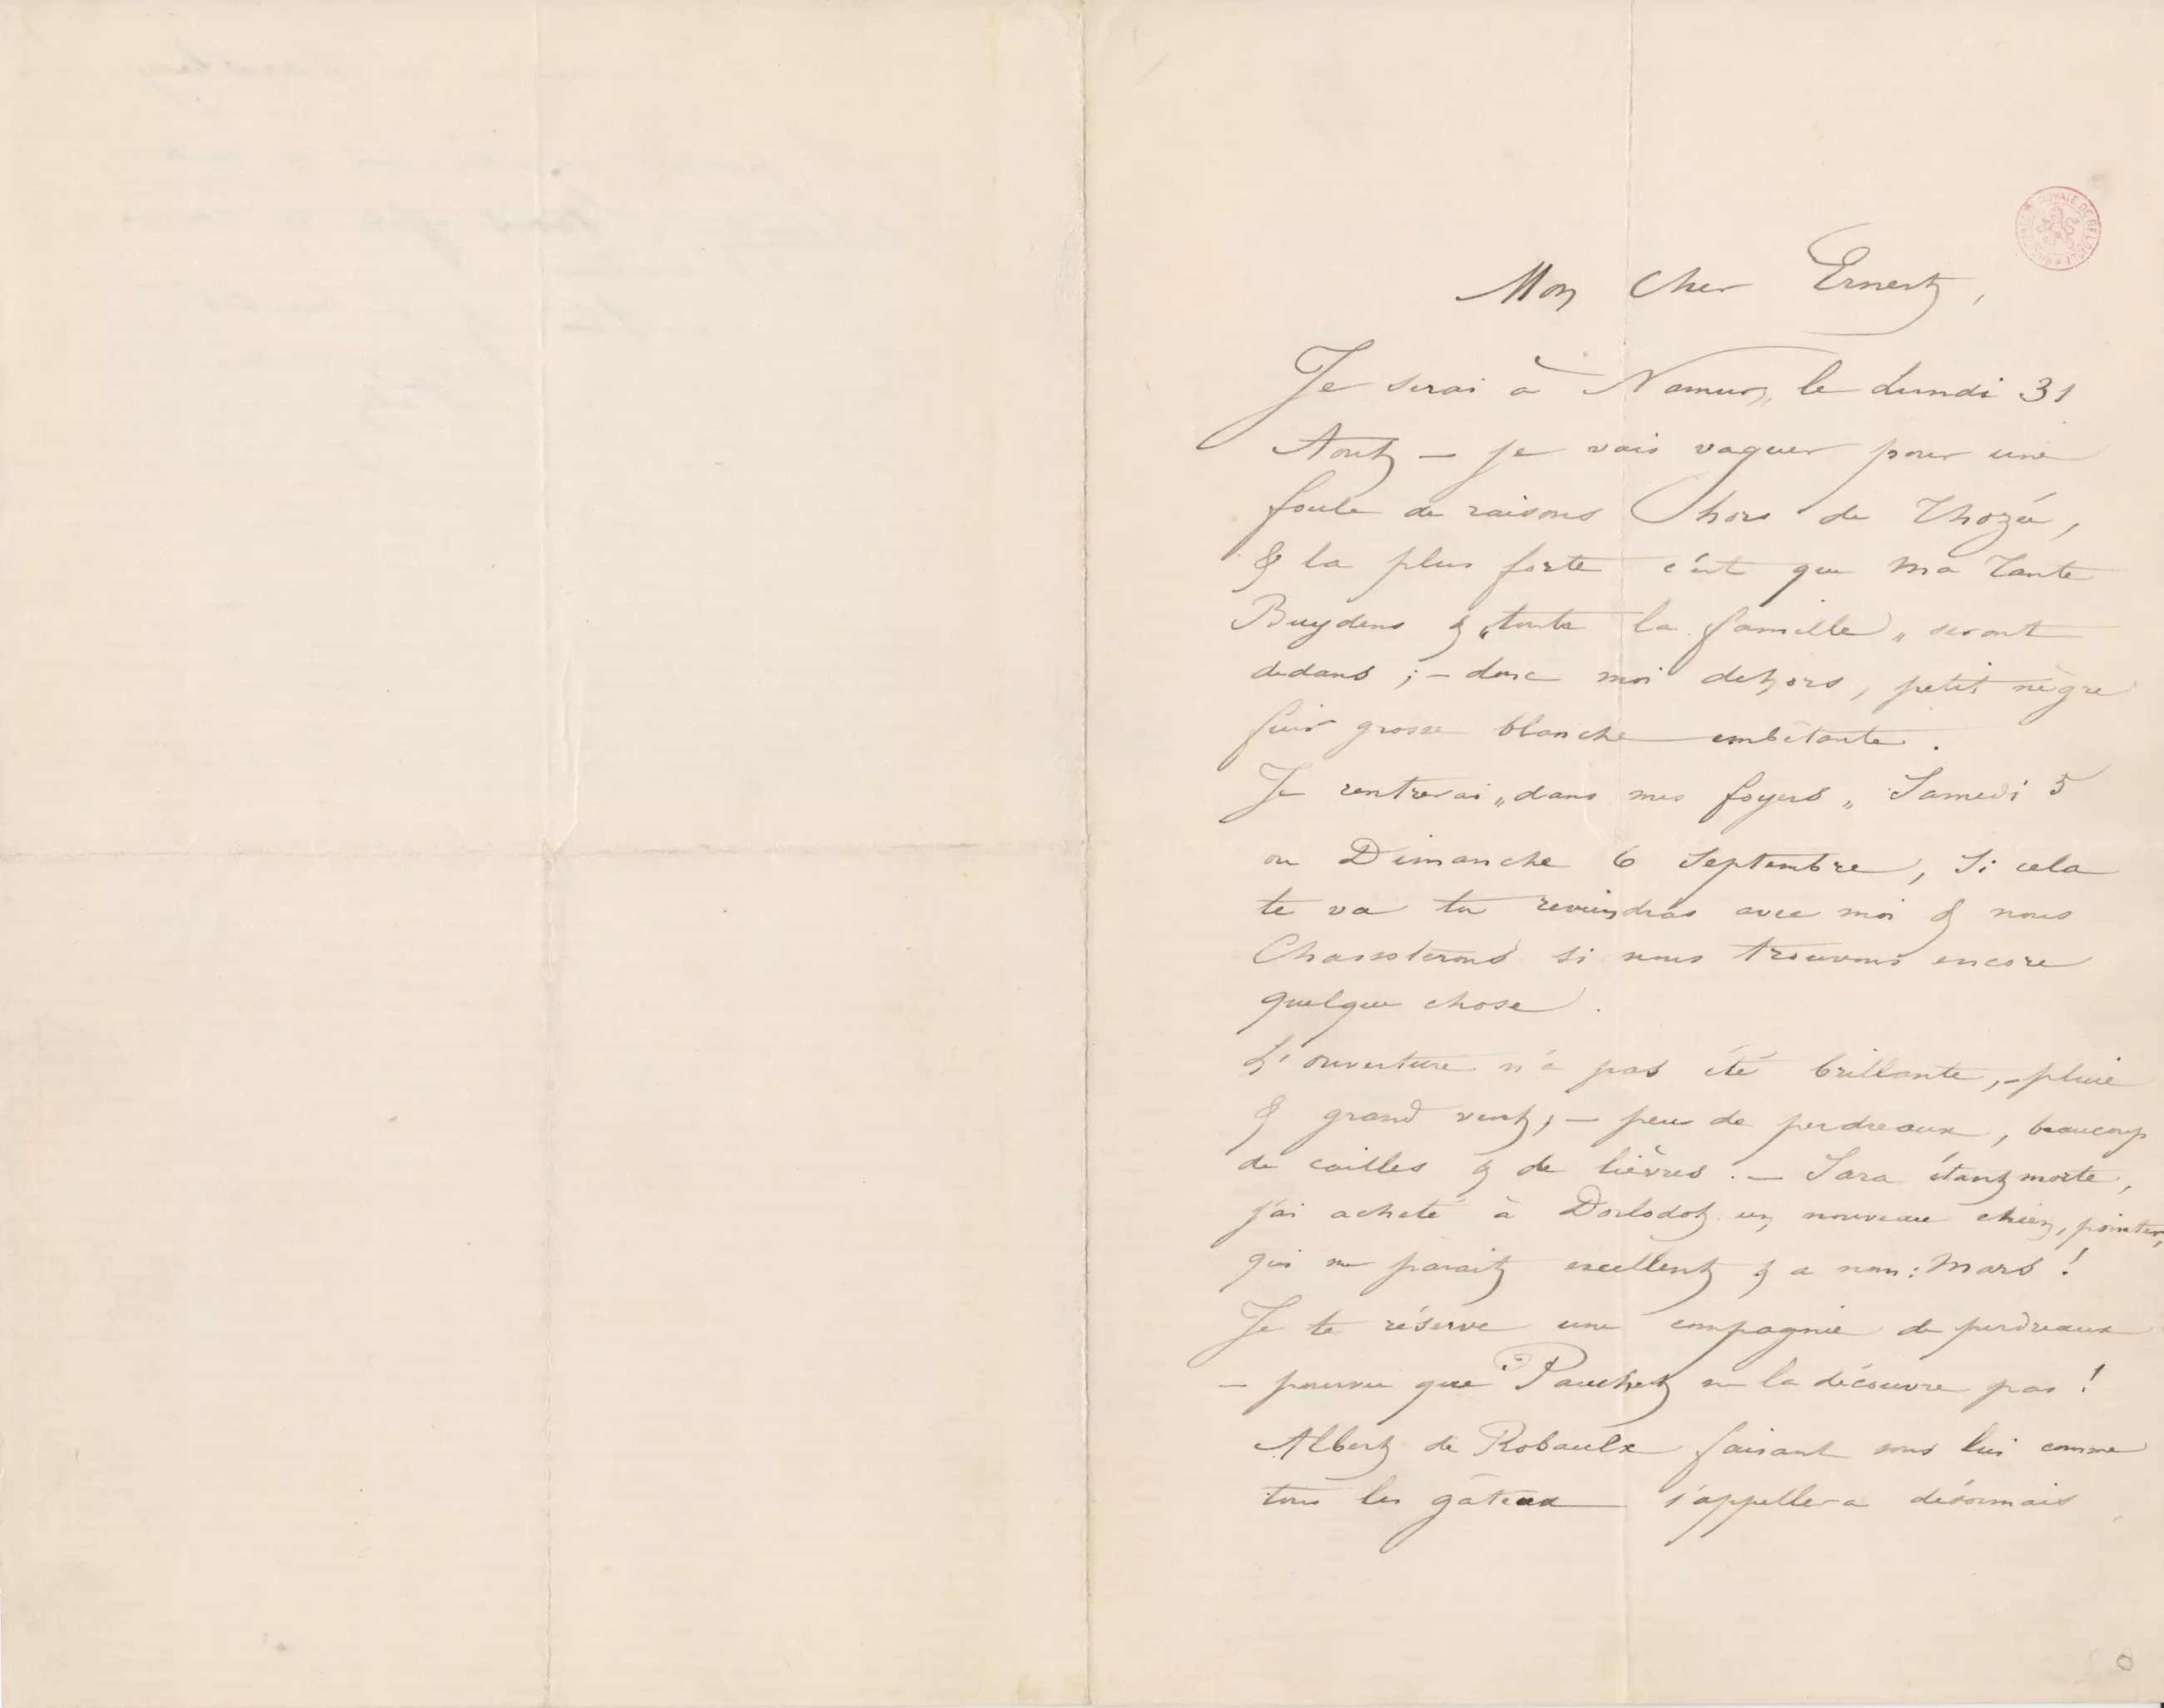 Mon Cher Ernest,
Je serai à Namur, le Lundi 31
Aout — je vais vaguer pour une
foule de raisons hors de Thozée,
& la plus forte c'est que ma Tante
Buydens & „toute la famille„ seront
dedans ; — donc moi dehors, petit nègre
fuir grosse blanche embêtante.
Je rentrerai „dans mes foyers„ Samedi 5
ou Dimanche 6 Septembre, Si cela
te va tu reviendras avec moi & nous
Chassoterons si nous trouvons encore
quelque chose.
L'ouverture n'a pas été brillante, – pluie
& grand vent, — peu de perdreaux, beaucoup
de cailles & de lièvres. — Sara étant morte,
j'ai acheté à Dorlodot un nouveau chien, pointer,
qui me parait excellent & a nom : Mars !
Je te réserve une compagnie de perdreaux
— pourvu que Pauchet ne la découvre pas !
Albert de Robaulx faisant sous lui comme
tous les gâteux s'appellera désormais
BIBLIOTHÈQUE ROYALE DE BELGIQUE